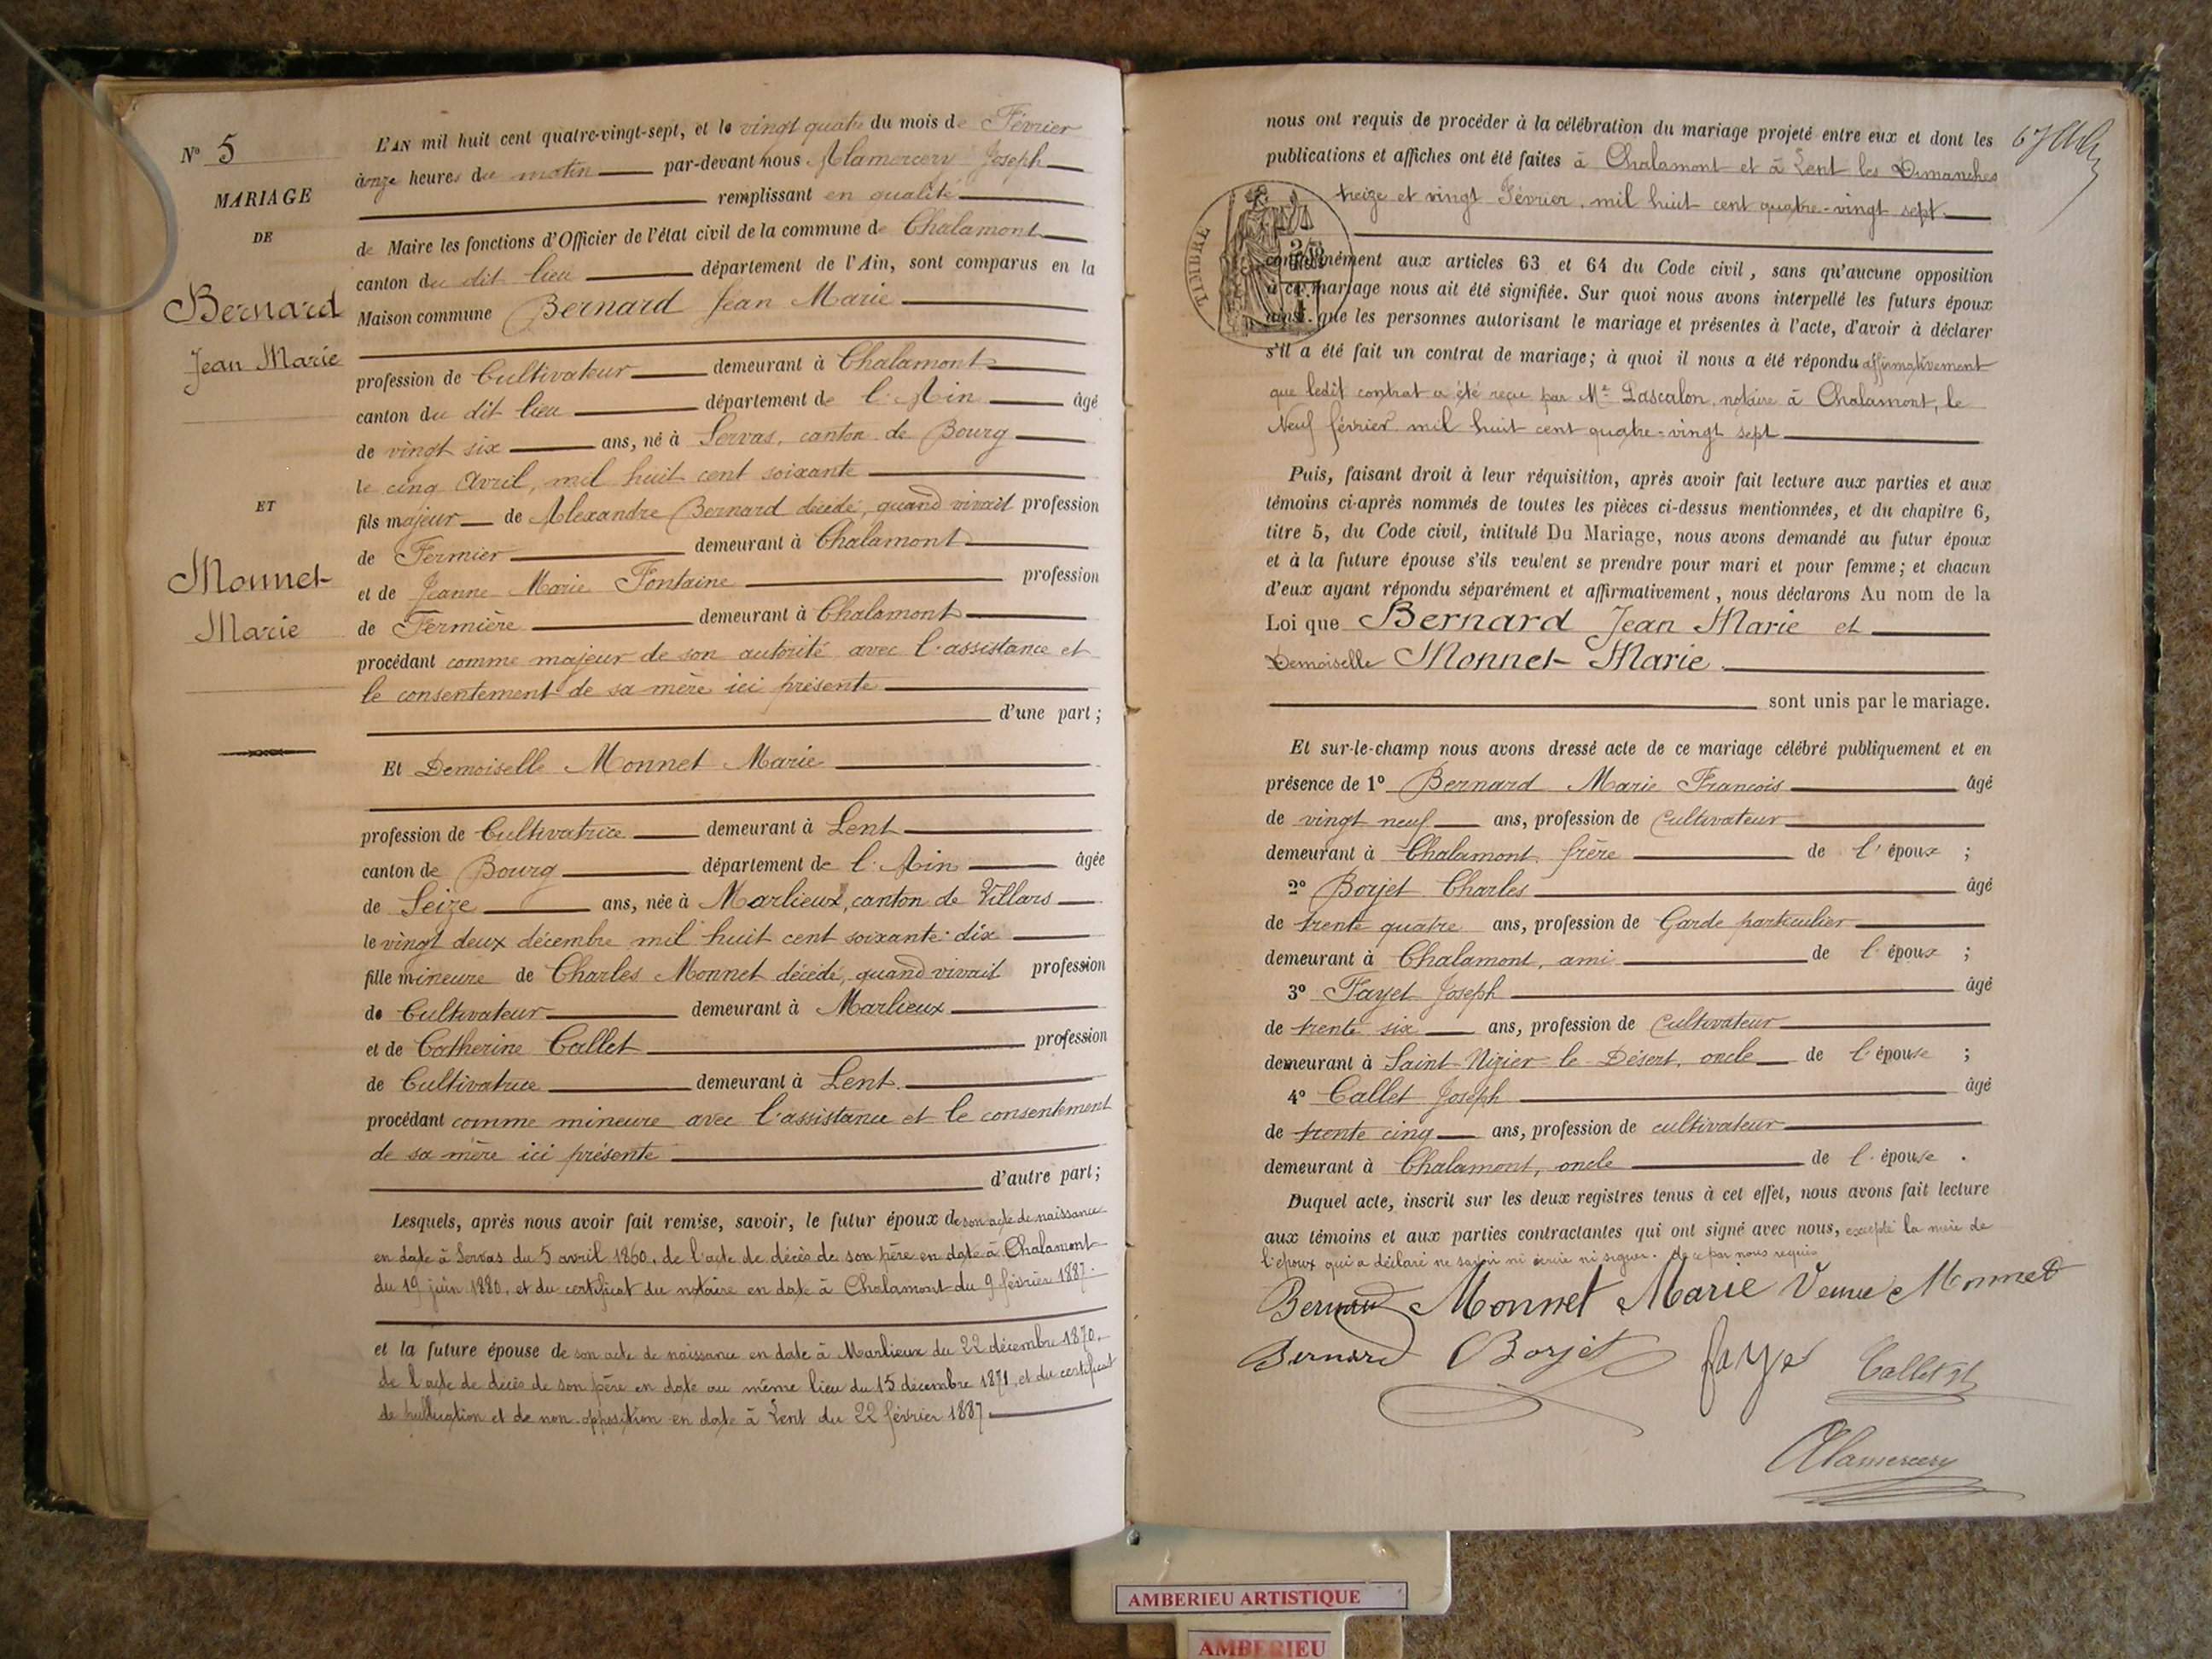 N° 5
MARIAGE
DE
Bernard
Jean Marie
ET
Monnet
Marie
L'AN mil huit cent quatre-vingt-sept, et le vingt quatre du mois de Février
à onze heures du matin par-devant nous Alamercery Joseph
remplissant en qualité
de Maire les fonctions d'Officier de l'état civil de la commune de Chalamont
canton du dit lieu département de l'Ain, sont comparus en la
Maison commune Bernard Jean Marie
profession de Cultivateur demeurant à Chalamont
canton du dit lieu département de l'Ain âgé
de vingt six ans, né à Servas, canton de Bourg
le cinq Avril, mil huit cent soixante
fils majeur de Alexandre Bernard décédé, quand vivait profession
de Fermier demeurant à Chalamont
et de Jeanne Marie Fontaine profession
de Fermière demeurant à Chalamont
procédant comme majeur de son autorité avec l'assistance et
le consentement de sa mère ici présente
d'une part;
Et Demoiselle Monnet Marie
profession de Cultivatrice demeurant à Lent
canton de Bourg département de l'Ain âgée
de Seize ans, née à Marlieux, canton de Villars
le vingt deux décembre mil huit cent soixante-dix
fille mineure de Charles Monnet décédé, quand vivait profession
de Cultivateur demeurant à Marlieux
et de Catherine Callet profession
de Cultivatrice demeurant à Lent.
procédant comme mineure avec l'assistance et le consentement
de sa mère ici présente
d'autre part;
Lesquels, après nous avoir fait remise, savoir, le futur époux de son acte de naissance
en date à Servas du 5 avril 1860, de l'acte de décès de son père en date à Chalamont
du 19 juin 1880, et du certificat du notaire en date à Chalamont du 9 février 1887.
et la future épouse de son acte de naissance en date à Marlieux du 22 décembre 1870,
de l'acte de décès de son père en date au même lieu du 15 décembre 1871, et du certificat
de publication et de non-opposition en date à Lent du 22 février 1887
nous ont requis de procéder à la célébration du mariage projeté entre eux et dont les
publications et affiches ont été faites à Chalamont et à Lent les Dimanches
treize et vingt Février, mil huit cent quatre-vingt sept
TIMBRE
conformément aux articles 63 et 64 du Code civil, sans qu'aucune opposition
à ce mariage nous ait été signifiée. Sur quoi nous avons interpellé les futurs époux
ainsi que les personnes autorisant le mariage et présentes à l'acte, d'avoir à déclarer
s'il a été fait un contrat de mariage; à quoi il nous a été répondu affirmativement
que ledit contrat a été reçu par Me Lascalon, notaire à Chalamont, le
Neuf février mil huit cent quatre-vingt sept
Puis, faisant droit à leur réquisition, après avoir fait lecture aux parties et aux
témoins ci-après nommés de toutes les pièces ci-dessus mentionnées, et du chapitre 6,
titre 5, du Code civil, intitulé Du Mariage, nous avons demandé au futur époux
et à la future épouse s'ils veulent se prendre pour mari et pour femme; et chacun
d'eux ayant répondu séparément et affirmativement, nous déclarons Au nom de la
Loi que Bernard Jean Marie et
Demoiselle Monnet Marie
sont unis par le mariage.
Et sur-le-champ nous avons dressé acte de ce mariage célébré publiquement et en
présence de 1° Bernard Marie François âgé
de vingt neuf ans, profession de Cultivateur
demeurant à Chalamont, frère de l'époux ;
2° Borjet Charles âgé
de trente quatre ans, profession de Garde particulier
demeurant à Chalamont, ami de l'époux ;
3° Fayet Joseph âgé
de trente six ans, profession de Cultivateur
demeurant à Saint-Nizier-le-Désert, oncle de l'épouse ;
4° Callet Joseph âgé
de trente cinq ans, profession de cultivateur
demeurant à Chalamont, oncle de l'épouse .
Duquel acte, inscrit sur les deux registres tenus à cet effet, nous avons fait lecture
aux témoins et aux parties contractantes qui ont signé avec nous, excepté la mère de
l'époux qui a déclaré ne savoir ni écrire ni signer. de ce par nous requis
Bernard Monnet Marie Veuve Monnet
Bernard Borjet fayet Callet
Alamercery
AMBERIEU ARTISTIQUE
AMBERIEU